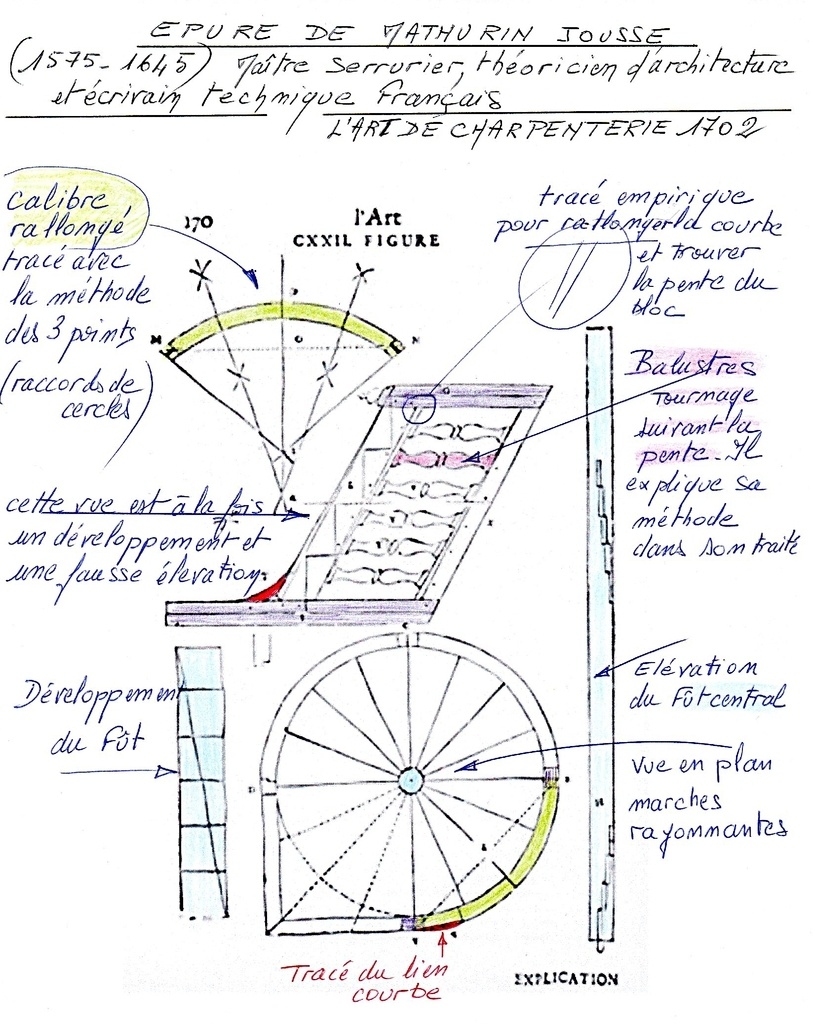 EPURE DE MATHURIN JOUSSE
(1575-1645) Maître serrurier, théoricien d'architecture
et écrivain technique Français
L'ART DE CHARPENTERIE 1702
calibre
rallongé
tracé avec
la méthode
des 3 points
(raccords de
cercles)
170
l'Art
CXXII. FIGURE
tracé empirique
pour rallonger la courbe
et trouver
la pente du
bloc
Balustres
Tournage
suivant la
pente. Il
explique sa
méthode
dans son traité
cette vue est à la fois
un développement et
une fausse élevation.
Développemen
du fût
Elévation
du Fût central
Vue en plan
marches
rayonnantes
Tracé du lien
courbe
EXPLICATION